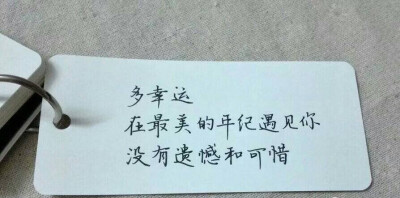 多幸运
在最美的年纪遇见你
没有遗憾和可惜